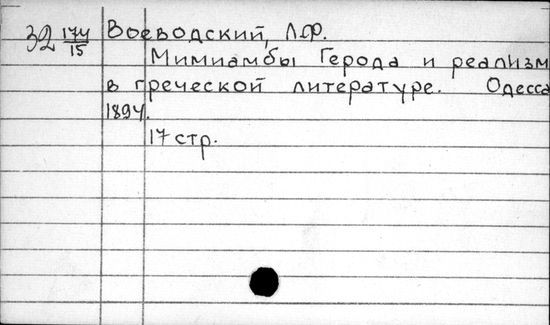 32 174/15 Воеводский, Л.Ф.
Мимиамбы Герода и реализм
в греческой литературе. Одесса
1894.
17 стр.